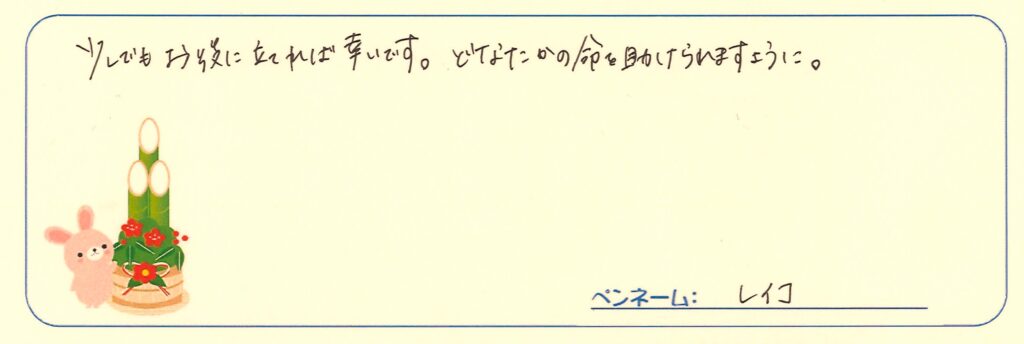 少しでもお役に立てれば幸いです。どなたかの命を助けられますように。
ペンネーム: レイコ